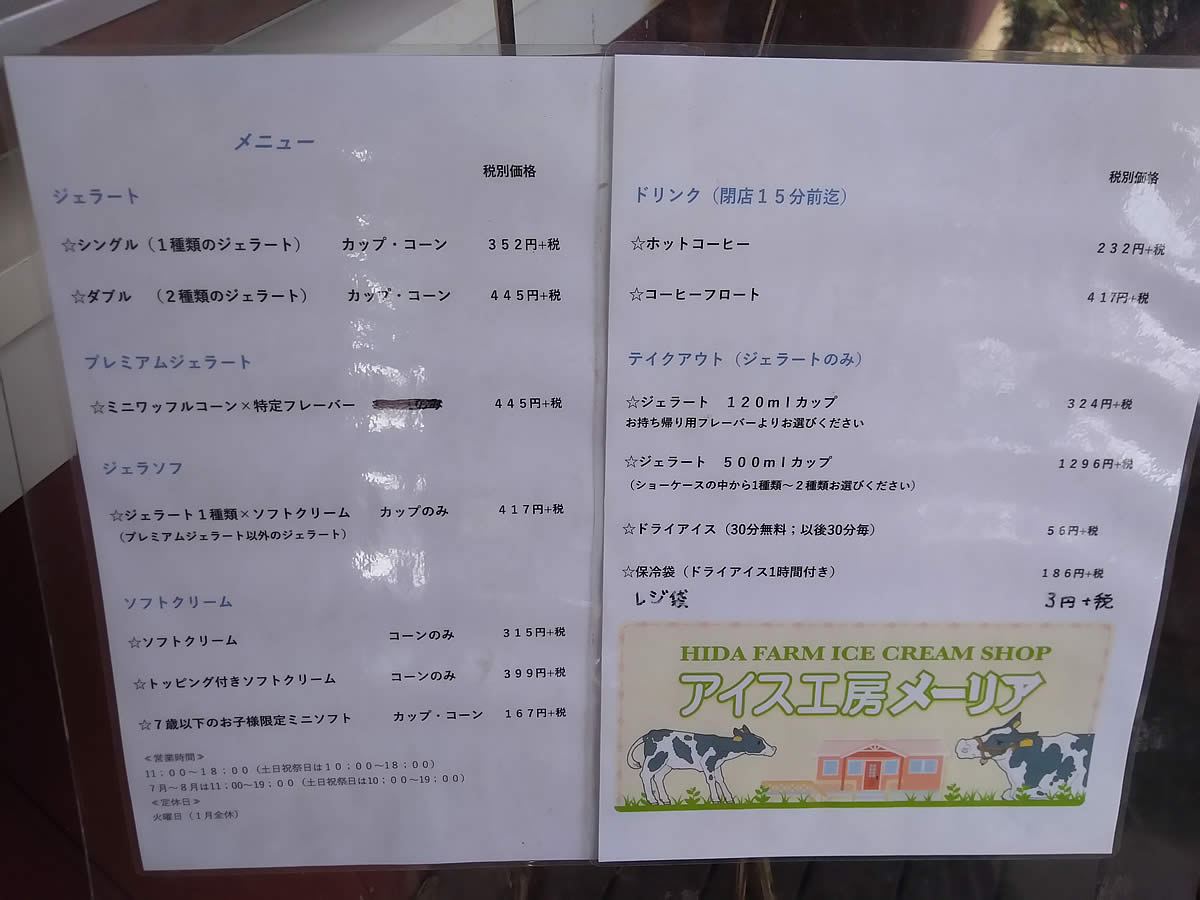 メニュー
税別価格
ジェラート
☆シングル（１種類のジェラート） カップ・コーン ３５２円+税
☆ダブル （２種類のジェラート） カップ・コーン ４４５円+税
プレミアムジェラート
☆ミニワッフルコーン×特定フレーバー ４４５円+税
ジェラソフ
☆ジェラート１種類×ソフトクリーム カップのみ ４１７円+税
（プレミアムジェラート以外のジェラート）
ソフトクリーム
☆ソフトクリーム コーンのみ ３１５円+税
☆トッピング付きソフトクリーム コーンのみ ３９９円+税
☆７歳以下のお子様限定ミニソフト カップ・コーン １６７円+税
≪営業時間≫
11；００～１８；００（土日祝祭日は１０；００～１８；００）
７月～８月は11；00～19；００（土日祝祭日は10；００～19；００）
≪定休日≫
火曜日（１月全休）
税別価格
ドリンク（閉店１５分前迄）
☆ホットコーヒー ２３２円+税
☆コーヒーフロート ４１７円+税
テイクアウト（ジェラートのみ）
☆ジェラート １２０ｍｌカップ ３２４円+税
お持ち帰り用フレーバーよりお選びください
☆ジェラート ５００ｍｌカップ １２９６円+税
（ショーケースの中から1種類～２種類お選びください）
☆ドライアイス（30分無料；以後30分毎） ５６円+税
☆保冷袋（ドライアイス1時間付き） １８６円+税
レジ袋 3円+税
HIDA FARM ICE CREAM SHOP
アイス工房メーリア